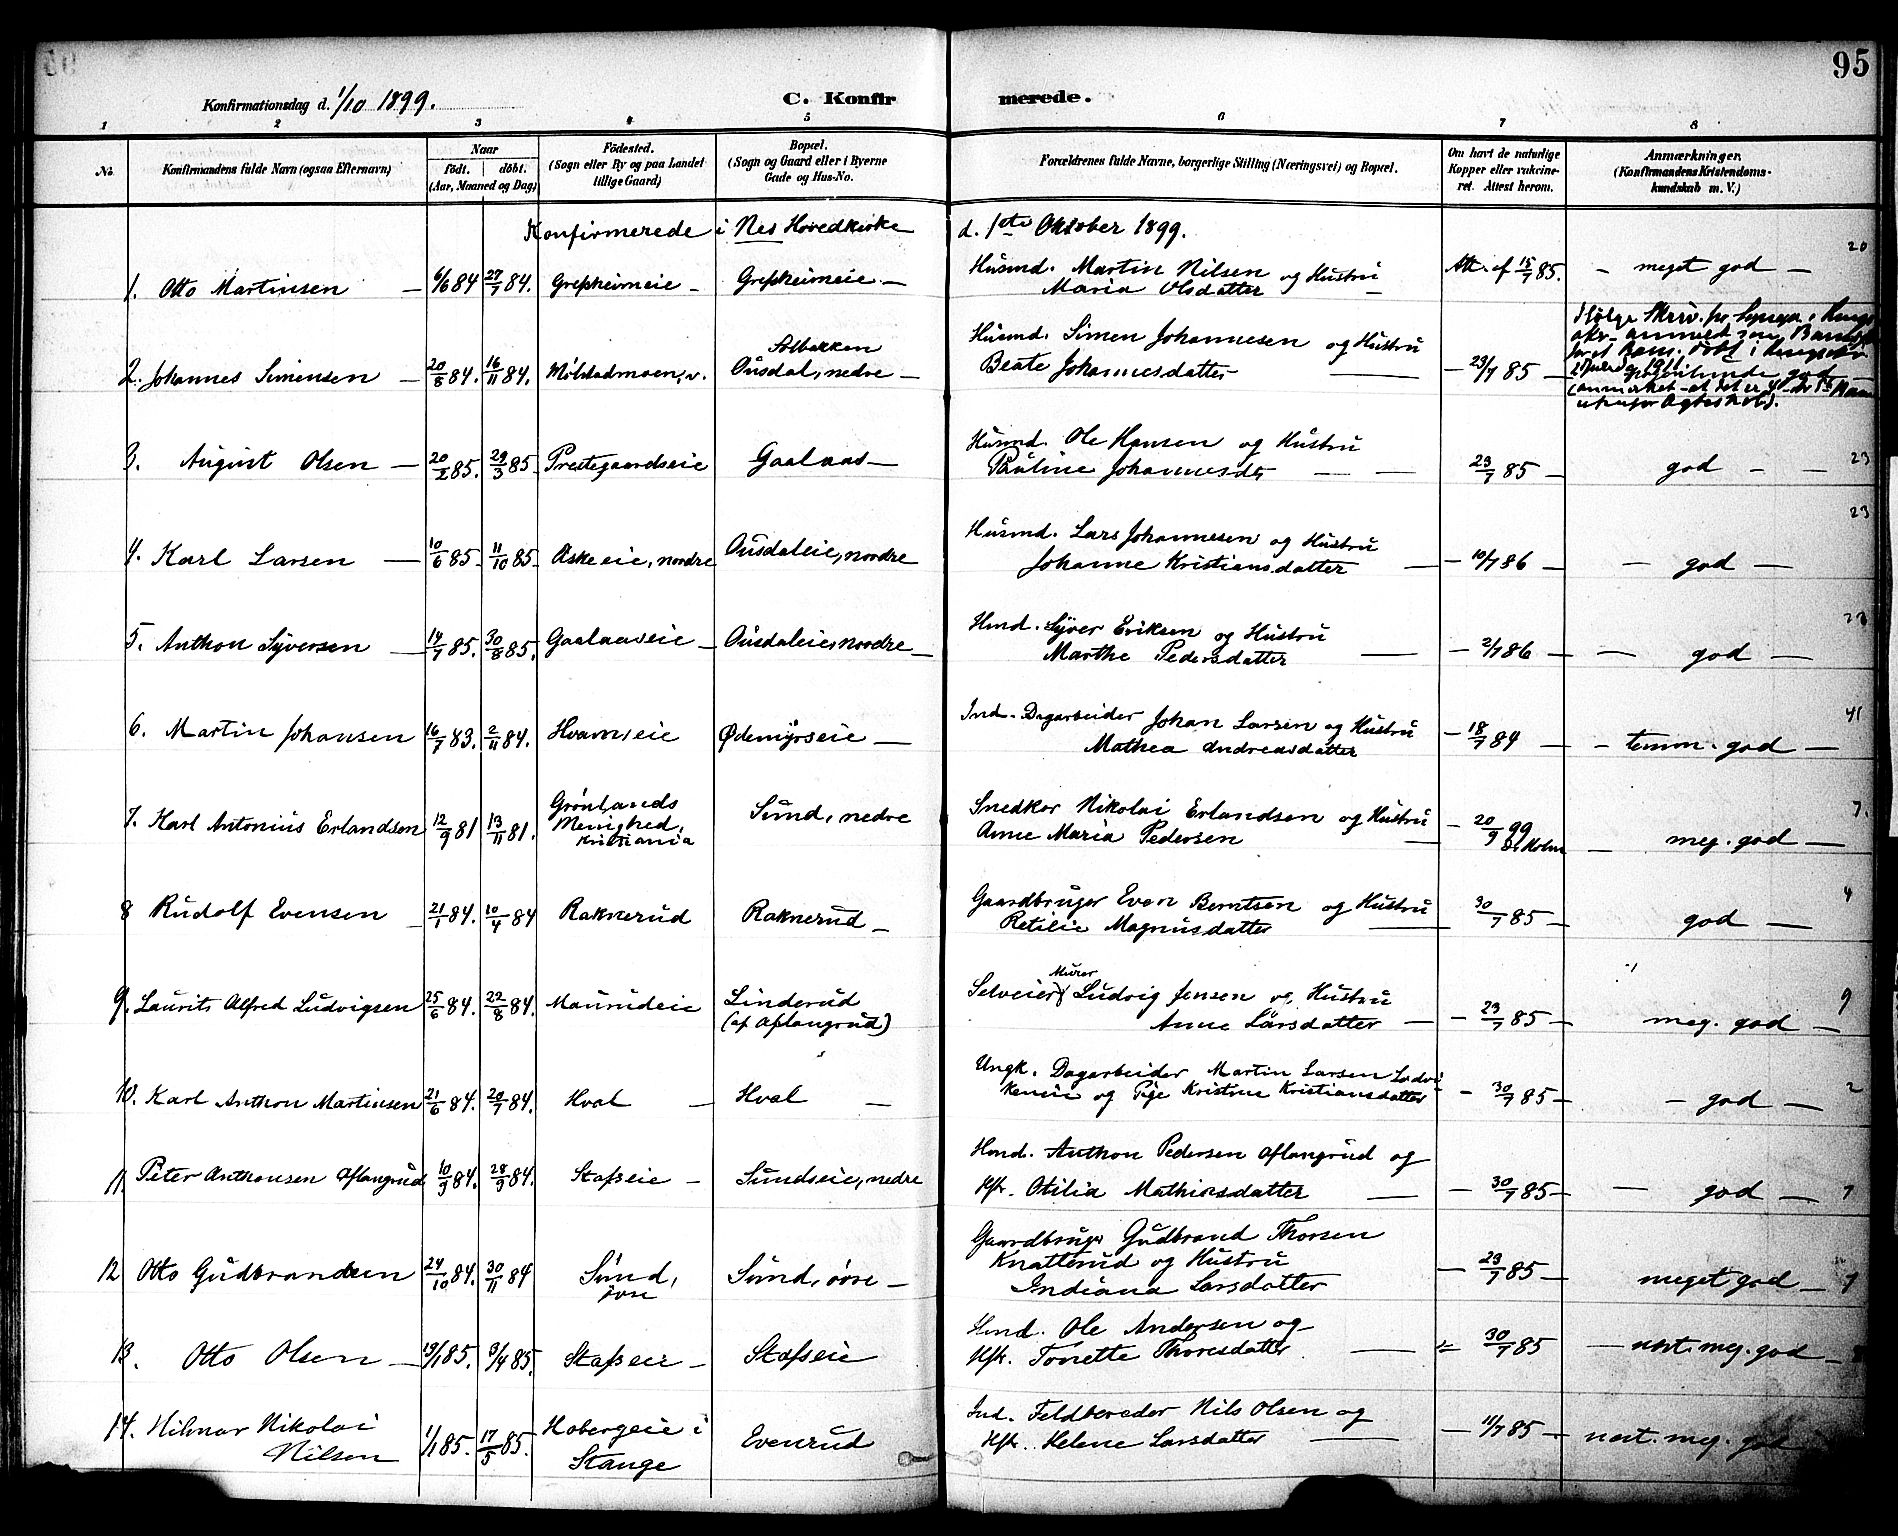 95
Konfirmationsdag d. 1/10 1899.
C. Konfirmerede.
1 2 3 4 5 6 7 8
No. Konfirmandens fulde Navn (ogsaa Efternavn) Naar født. døbt. (Aar, Maaned og Dag) Fødested. (Sogn eller By og paa Landet tillige Gaard) Bopæl. (Sogn og Gaard eller i Byerne Gade og Hus-No. Forældrenes fulde Navne, borgerlige Stilling (Næringsvei) og Bopæl. Om havt de naturlige Kopper eller vakcineret. Attest herom. Anmærkninger. (Konfirmandens Kristendomskundskab m. V.)
Konfirmerede i Nes Hovedkirke d. 1ste Oktober 1899.
20
1. Otto Martinsen — 6/6 84 27/7 84. Grefsheimeie — Grefsheimeie — Husmd. Martin Nilsen og Hustru
Maria Olsdatter — Att. af 15/7 85. — meget god —
2. Johannes Simensen — 20/8 84. 16/11 84. Milstadmoen, v. Solbakken
Ousdal, nedre — Husmd. Simen Johannesen og Hustru
Beate Johannesdatter — 23/7 85 — god
3. August Olsen — 20/2 85. 29/3 85 Prestegaardseie Gaalaas — Husmd. Ole Hansen og Hustru
Pauline Johannesdt. — 23/7 85 — god — 23
4. Karl Larsen — 10/6 85 11/10 85 Askeeie, nordre Ousdaleie, nordre Husmd. Lars Johannesen og Hustru
Johanne Kristiansdatter — 10/7 86 — god — 23
5. Anthon Syversen — 14/7 85. 30/8 85. Gaalaaseie — Ousdaleie, nordre — Hmd. Syver Eriksen og Hustru
Marthe Pedersdatter — 2/7 86 — god —
6. Martin Johansen 16/7 83. 2/11 84. Hvamseie Ødemyrseie — Ind. Dagarbeider Johan Larsen og Hustru
Mathea Andreasdatter — 18/7 84 — temm. god — 41
7. Karl Antonius Erlandsen 12/9 81 13/11 81. Grønlands
Menighed,
Kristiania Sund, nedre Snedker Nikolai Erlandsen og Hustru
Anne Maria Pedersen — 20/9 99
Dr Holm — meg. god — 7.
8 Rudolf Evensen — 21/1 84. 10/4 84 Raknerud Raknerud — Gaardbruger Even Berntsen og Hustru
Retilie Magnusdatter — 30/7 85 — god — 4
9. Laurits Alfred Ludvigsen 25/6 84. 22/8 84. Maurudeie Linderud
(af Aflangrud) Selveier Murer Ludvig Jensen og Hustru
Anne Larsdatter — 23/7 85 — meg. god — 9
10. Karl Anthon Martinsen 21/6 84. 20/7 84. Hval — Hval — Ungk. Dagarbeider Martin Larsen
og Pige Kristine Kristiansdatter — 30/7 85 — god — 2
11. Peter Anthonsen Aflangrud 10/9 84. 28/9 84. Stafseie — Sundseie, nedre Hmd. Anthon Pedersen Aflangrud og
Hfr. Otilia Mathiasdatter — 30/7 85 — god — 7
12 Otto Gudbrandsen 24/10 84. 30/11 84 Sund,
øvre Sund, øvre — Gaardbruger Gudbrand Thorsen
Knatterud og Hustru
Indiana Larsdatter — 23/7 85 — meget god — 7
13. Otto Olsen — 19/1 85. 3/4 85. Stafseie — Stafseie Hmd. Ole Andersen og
Hfr. Tonette Thoresdatter. — 30/7 85 — næst. meg. god —
14. Hilmar Nikolai
Nilsen 1/1 85. 17/5 85. Hobergeie i
Stange Evenrud Ind. Feldbereder Nils Olsen og
Hfr. Helene Larsdatter — 11/7 85 — næst. meg. god